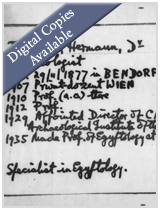 Digital Copies
Available
Hermann, Dr
29/1/1877 in BENDORF
1907 Privatdozent WIEN
1910 Prof. (a.o)
1912
1929 Appointed Director of
Archaeological Institute of the
1935 Prof. Egyptology at
Specialist in Egyptology.